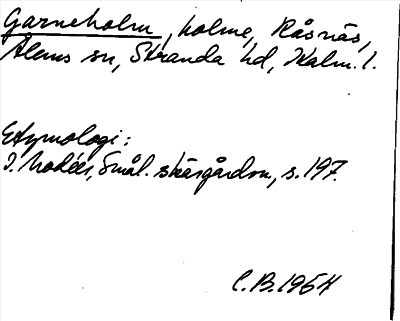 Garneholm, holme, Råsnäs,
Ålems sn, Stranda hd, Kalm. l.
Etymologi:
I. Modéer, Smål. skärgårdsn., s. 197.
C.B. 1964